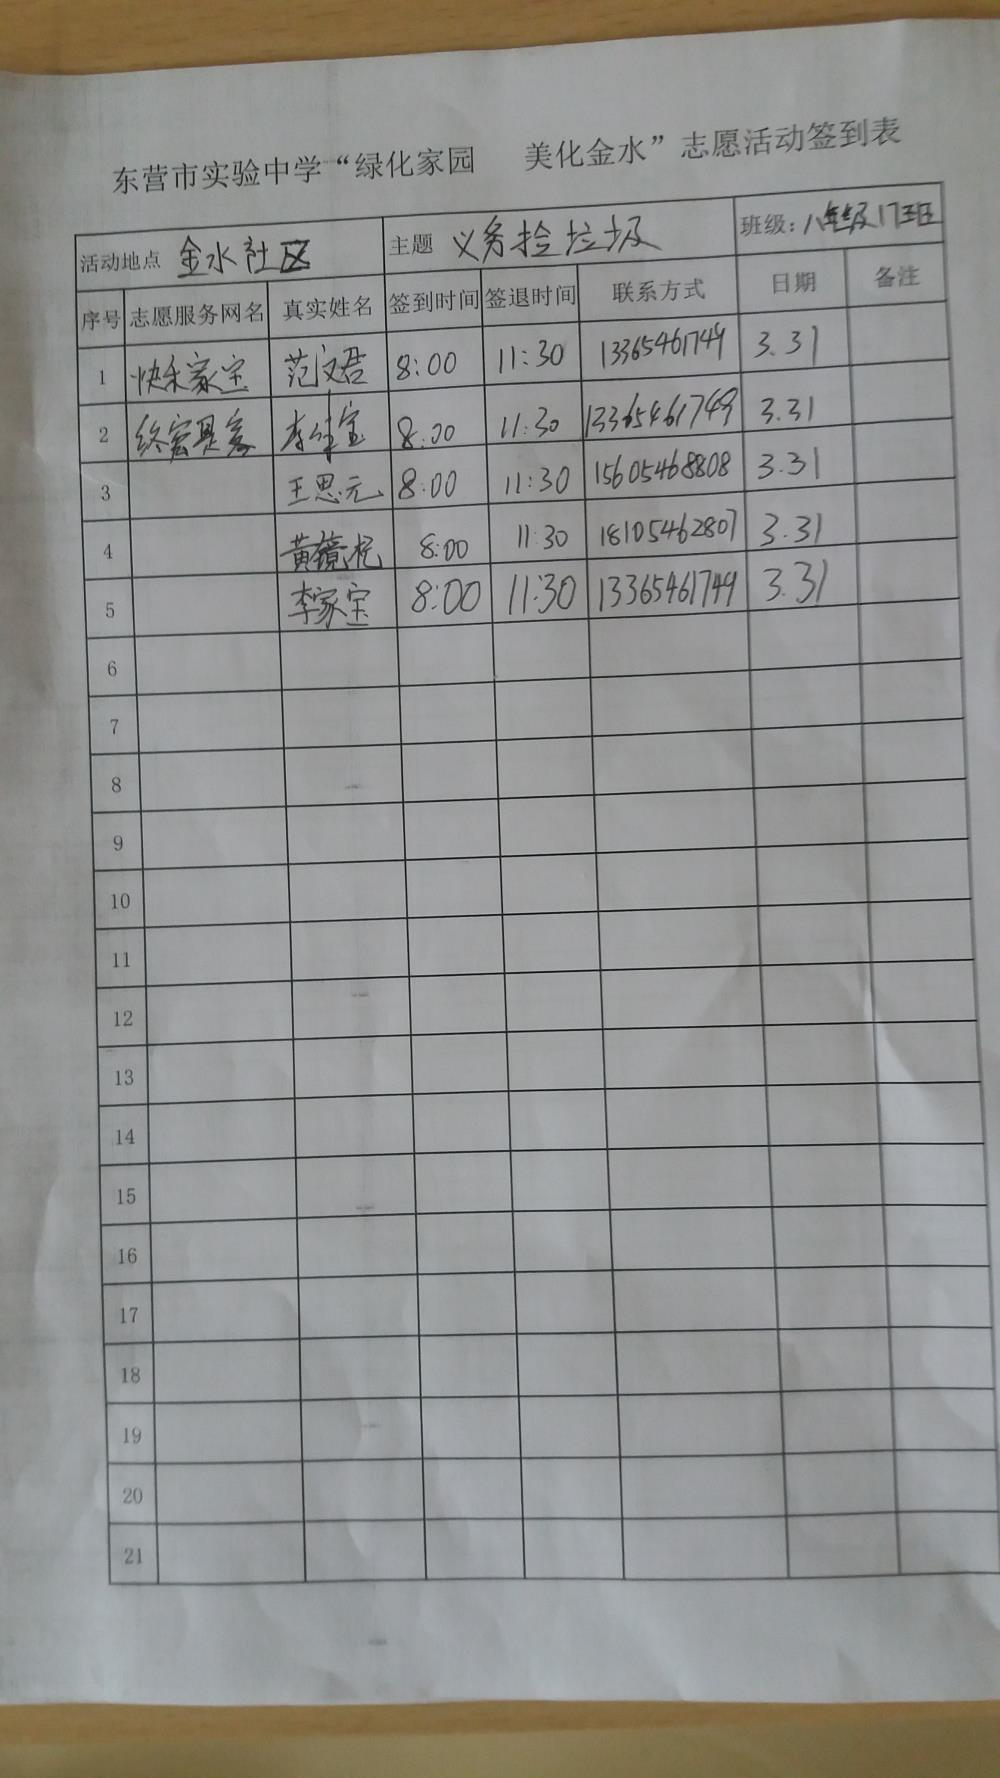 东营市实验中学“绿化家园 美化金水”志愿活动签到表
活动地点 金水社区 主题 义务捡垃圾 班级：八年级17班
序号 志愿服务网名 真实姓名 签到时间 签退时间 联系方式 日期 备注
1 快乐家宝 范文君 8:00 11:30 13365461749 3.31
2 李佳宝 8:00 11:30 13365461749 3.31
3 王思元 8:00 11:30 15605468808 3.31
4 8:00 11:30 18105462807 3.31
5 李家宝 8:00 11:30 13365461749 3.31
6
7
8
9
10
11
12
13
14
15
16
17
18
19
20
21